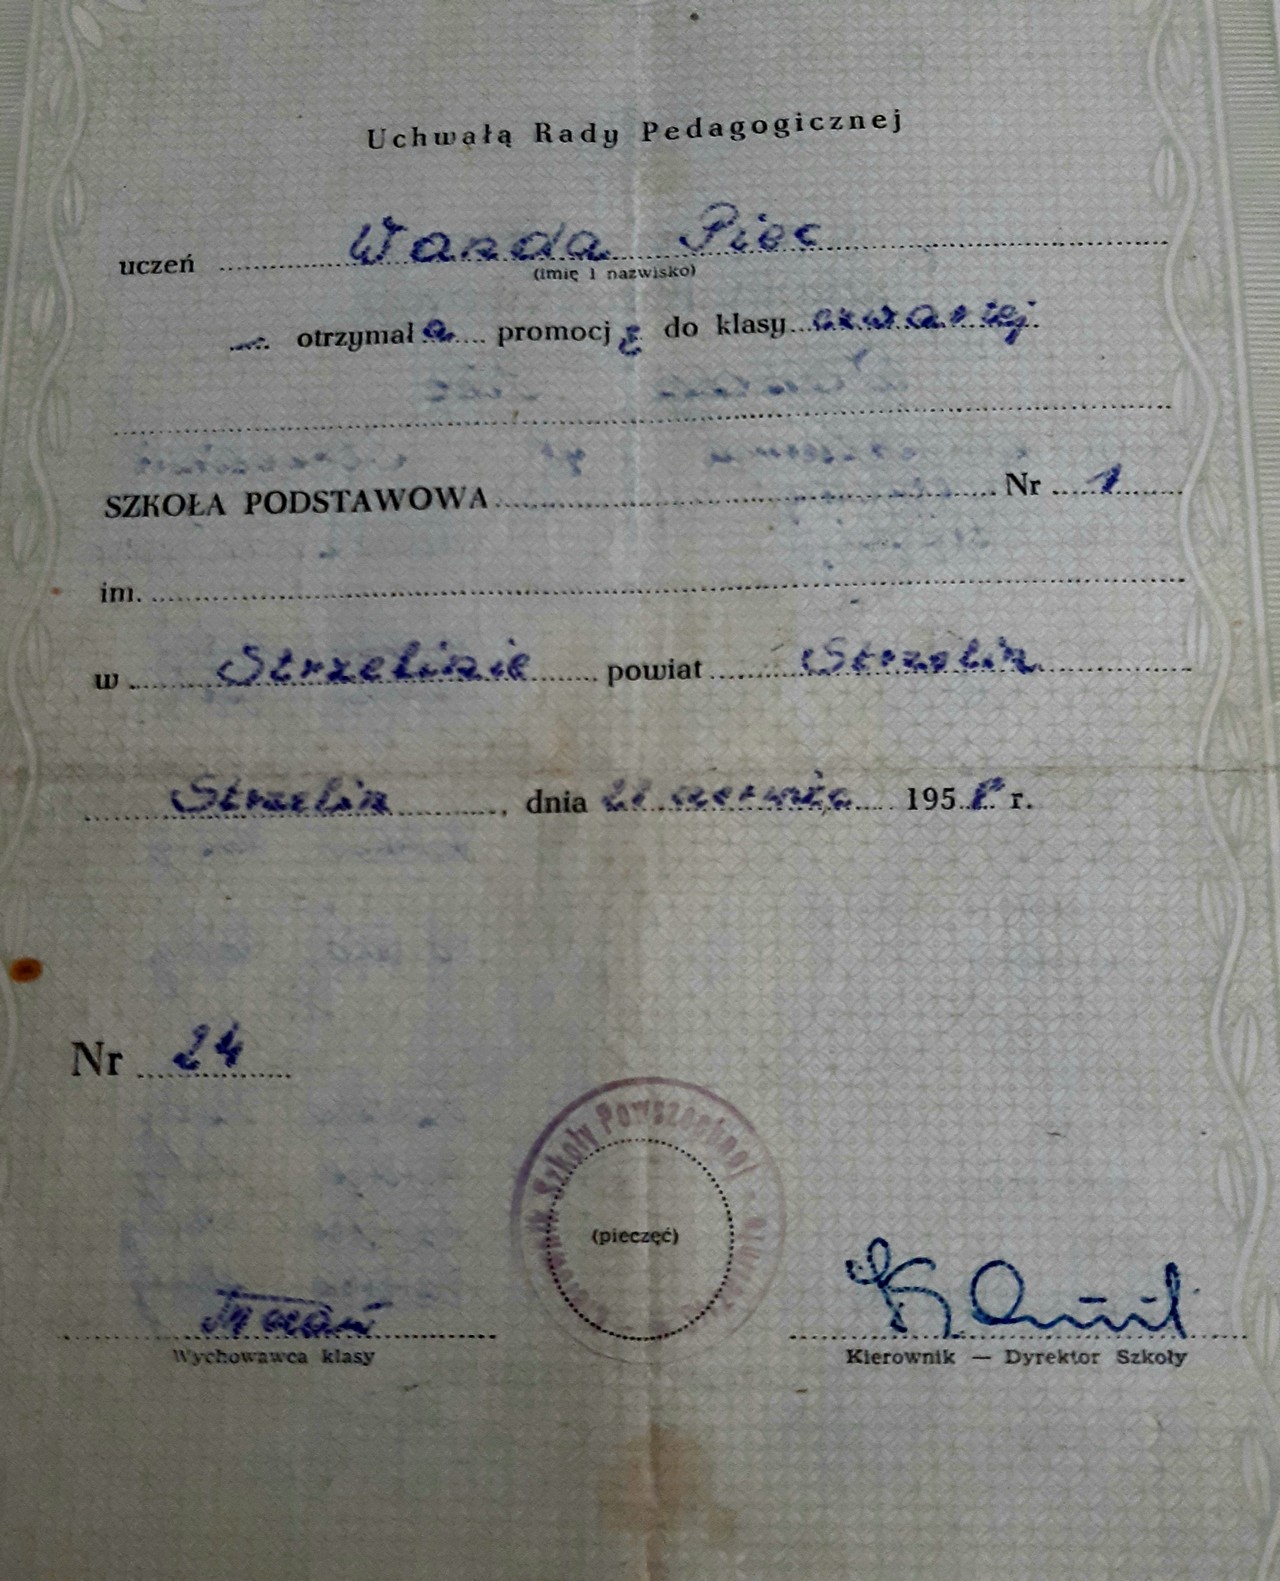 Uchwałą Rady Pedagogicznej
uczeń Wanda Piec
(imię i nazwisko)
otrzymała promocję do klasy czwartej
SZKOŁA PODSTAWOWA Nr 1
im.
w Strzelinie powiat Strzelin
Strzelin, dnia 21 czerwca 1958 r.
Nr 24
Kierownik Szkoły Powszechnej
(pieczęć)
Wychowawca klasy
Kierownik — Dyrektor Szkoły